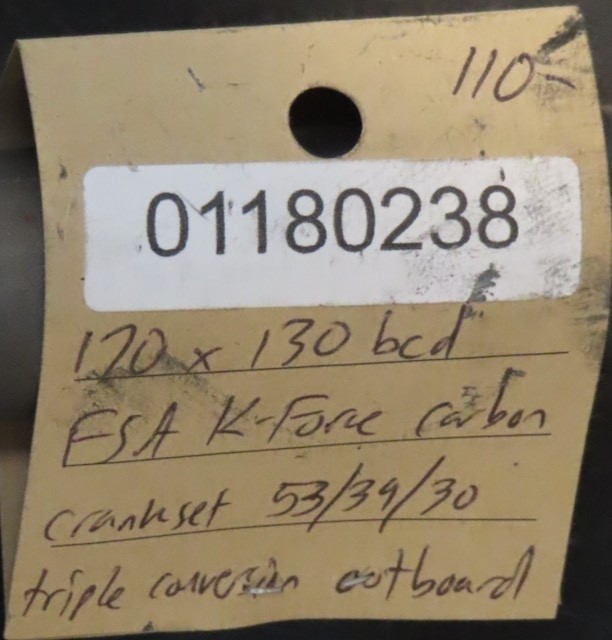 110-
01180238
170 x 130 bcd
FSA K-Force carbon
crankset 53/39/30
triple conversion outboard